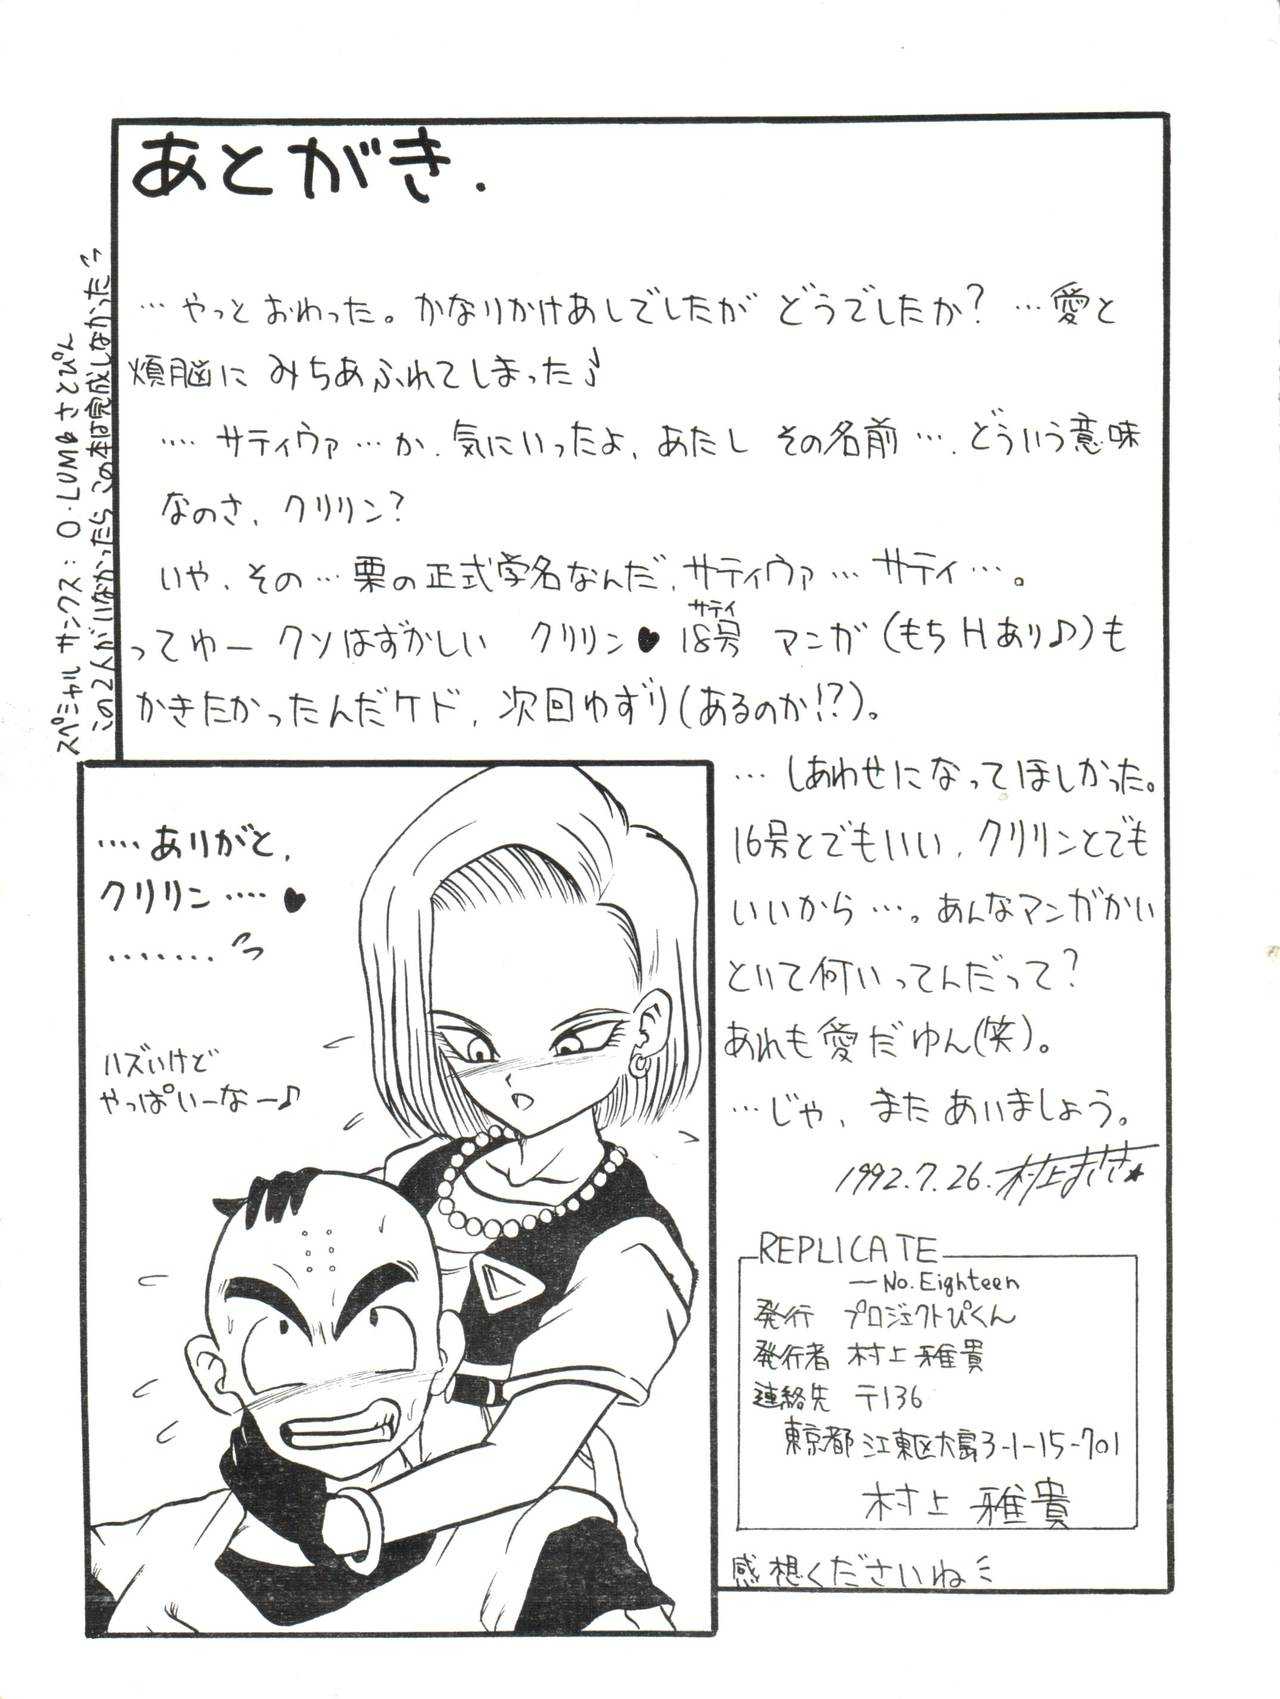 あとがき.
…やっとおわった。かなりかけあしでしたが どうでしたか? …愛と
煩脳に みちあふれてしまった♪
…. サティヴァ …か. 気にいったよ, あたし その名前 …. どういう意味
なのさ, クリリン?
いや, その… 栗の正式学名なんだ, サティヴァ … サティ …。
ってゆー クソはずかしい クリリン♥18号 マンガ(もちHあり♪)も
サティ
かきたかったんだケド, 次回ゆずり(あるのか!?)。
… しあわせになってほしかった。
16号とでもいい, クリリンとでも
いいから …。あんなマンガかい
といて何いってんだって?
あれも愛だゆん(笑)。
…じゃ, また あいましょう。
1992.7.26. 村上まさき★
スペシャル サンクス: O・LUM&さとぴん
この2人がいなかったら この本は完成しなかったっっ
….ありがと,
クリリン …. ♥
....... っっ
ハズいけど
やっぱいーなー♪
REPLICATE
—No. Eighteen
発行 プロジェクトぴくん
発行者 村上 雅貴
連絡先 〒136
東京都 江東区大島3-1-15-701
村上 雅貴
感想くださいね